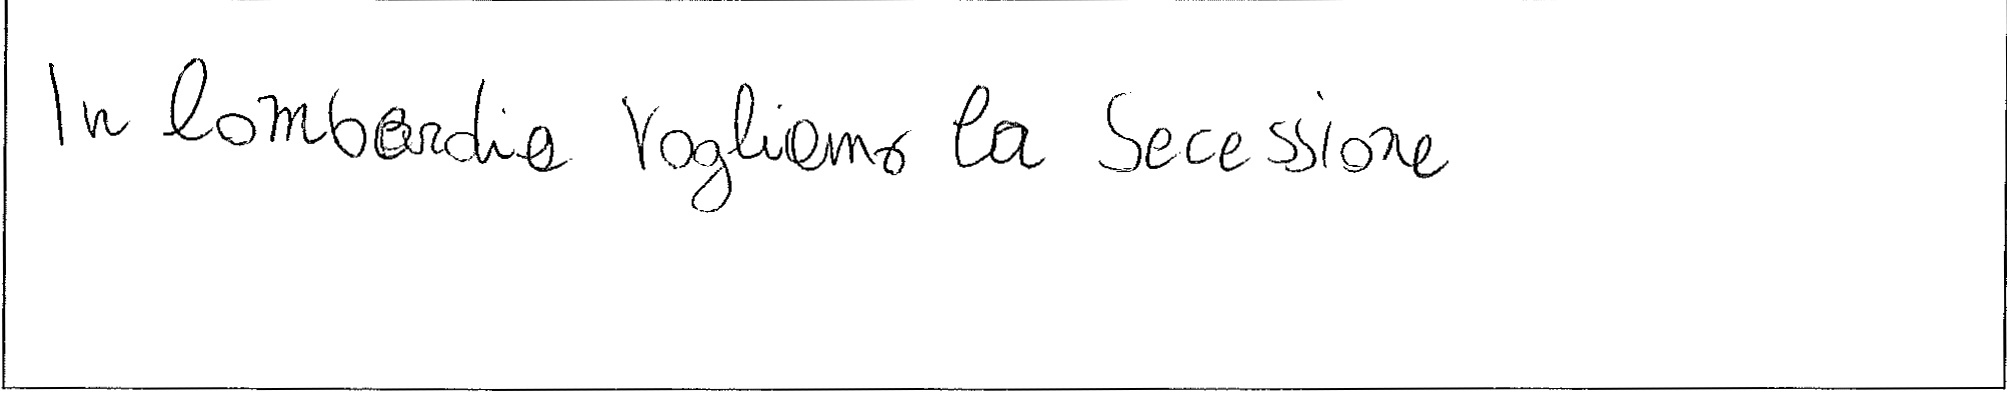 In lombardia Vogliamo la Secessione